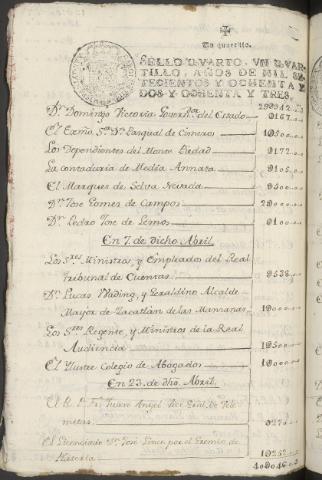 Un quartillo.
SELLO QVARTO, VN QVAR-
TILLO, AÑOS DE MIL SE-
TECIENTOS Y OCHENTA Y
DOS Y OCHENTA Y TRES.
Dn. Domingo Victoria del Estado
El Exmo Sor. Dn. Pasqual de Cisneros 10500
Los Dependientes del Monte Piedad 0172
La contaduria de Media Annata 0105
El Marques de Selva Nevada 0500
Dn. Jose Gomes de Campos 20000
Dn. Pedro Jose de Lemos 0100
En 7. de dicho Abril.
Los Sres Ministros, y Empleados del Real
Tribunal de Cuentas 0538
Dn. Lucas Wading, y Geraldino Alcalde
Mayor de Zacatlan de las Manzanas 10000
Los Sres Regente, y Ministros de la Real
Audiencia 10500
El Ylustre Colegio de Abogados 10000
En 23. de dho. Abril.
El R. P. Fr. Juan Angel
El Licenciado Dn. José por el Gremio de